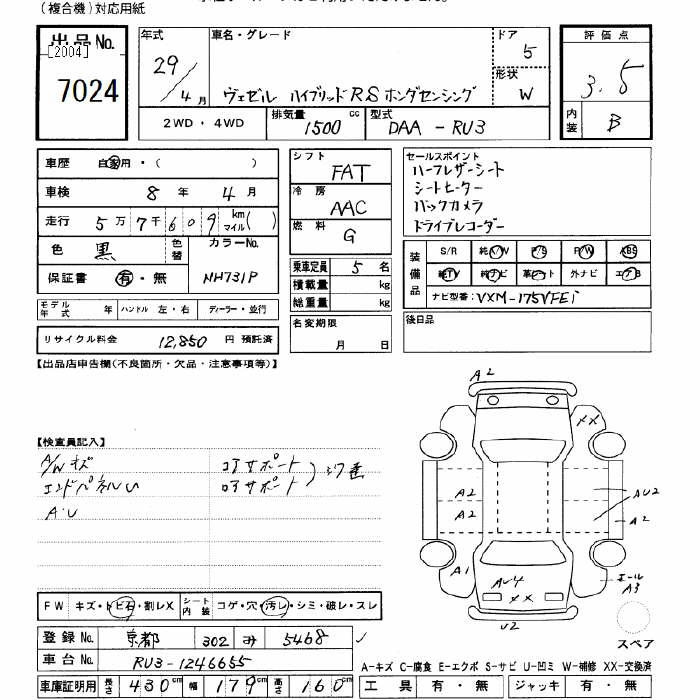 (複合機)対応用紙
出品No.
[2004]
7024
年式
29/4月
車名・グレード
ヴェゼル ハイブリッドRS ホンダセンシング
ドア
5
形状
W
評価点
3.5
内装
B
2WD・4WD
排気量 1500 cc
型式 DAA-RU3
車歴 自家用・( )
車検 8年 4月
走行 5万7千609 km マイル( )
色 黒
色替
カラーNo.
NH731P
保証書 有・無
モデル年式 年 ハンドル 左・右 ディーラー・並行
リサイクル料金 12,850 円 預託済
シフト FAT
冷房 AAC
燃料 G
乗車定員 5 名
積載量 kg
総重量 kg
名変期限
月 日
セールスポイント
ハーフレザーシート
シートヒーター
バックカメラ
ドライブレコーダー
装備品
S/R 純A/W P/S P/W ABS
純TV 純ナビ 革シート 外ナビ エアB
ナビ型番: VXM-175VFEi
後日品
【出品店申告欄(不良箇所・欠品・注意事項等)】
【検査員記入】
A/Wキズ
コアサポート
エンドパネルU
ロアサポート
A・U
A2
XX
A2
A2
AU2
A2
A1
AU4
XX
U2
A3
スペア
FW キズ・トビ石・割レX
シート内装 コゲ・穴・汚レ・シミ・破レ・スレ
登録No. 京都 302 み 5468
車台No. RU3-1246655
車庫証明用 長さ 430cm 幅 179cm 高さ 160cm
A-キズ C-腐食 E-エクボ S-サビ U-凹ミ W-補修 XX-交換済
工具 有・無 ジャッキ 有・無